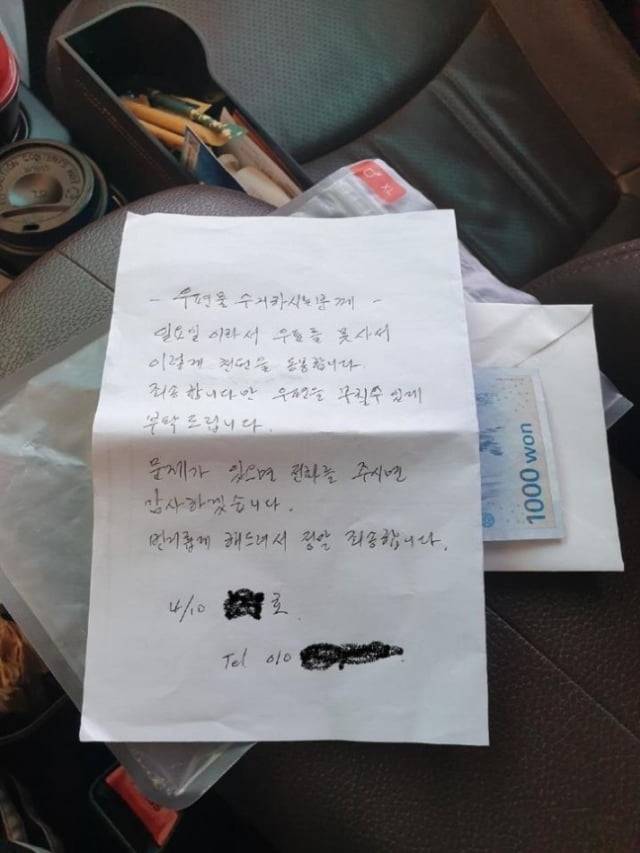 - 우편물 수거하시는 분께 -
일요일이라서 우표를 못사서
이렇게 천원을 동봉합니다.
죄송합니다만 우편을 부칠수 있게
부탁드립니다.
문제가 있으면 전화를 주시면
감사하겠습니다.
번거롭게 해드려서 정말 죄송합니다.
4/10 로.
Tel 010
1000 won
XL